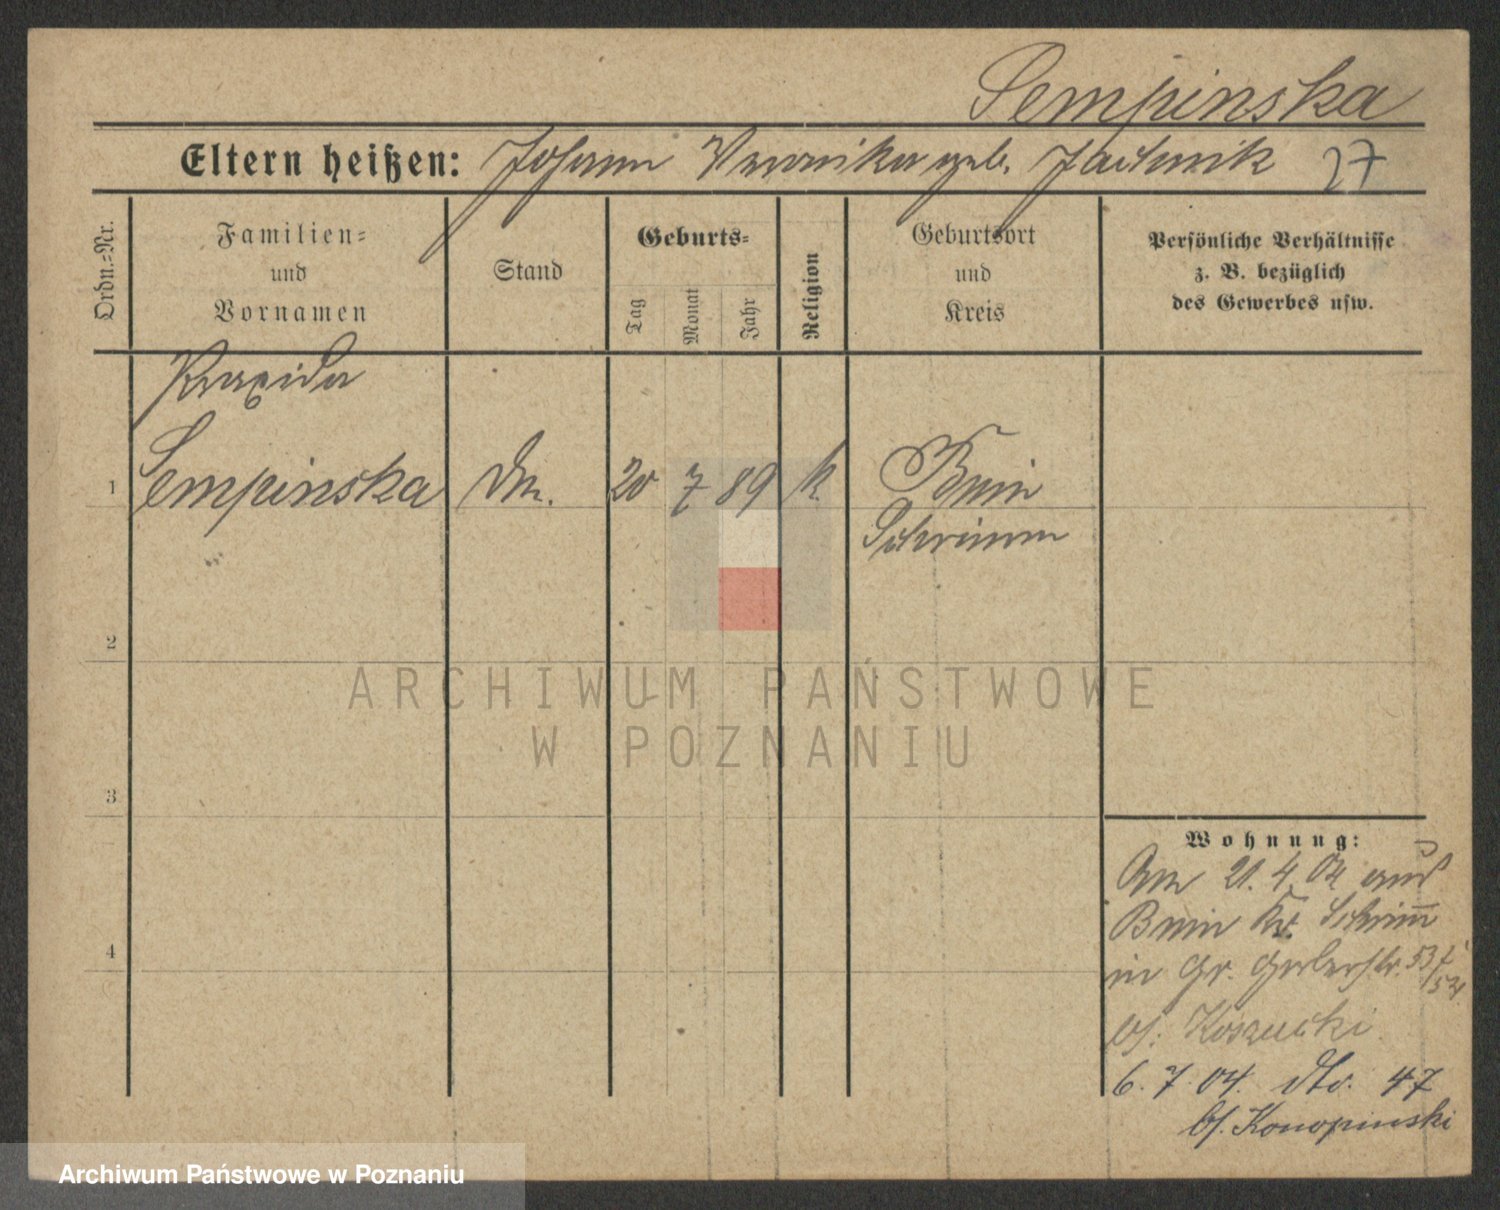 Sempinska
Eltern heißen: Johann Veronika geb. Jachnik 27
Ordn.=Nr.
Familien=
und
Vornamen
Stand
Geburts=
Tag
Monat
Jahr
Religion
Geburtsort
und
Kreis
Persönliche Verhältnisse
z. B. bezüglich
des Gewerbes usw.
Praxeda
1 Sempinska Dm. 20 7 89 k. Bnin
Schrimm
2
3
4
Wohnung:
Am 21.4.04 aus
Bnin Kr. Schrim̅
in Gr. Gerberstr. 53/
54
bf: Koszucki
6.7.04. dto. 47
bf. Konopinski
ARCHIWUM PAŃSTWOWE
W POZNANIU
Archiwum Państwowe w Poznaniu